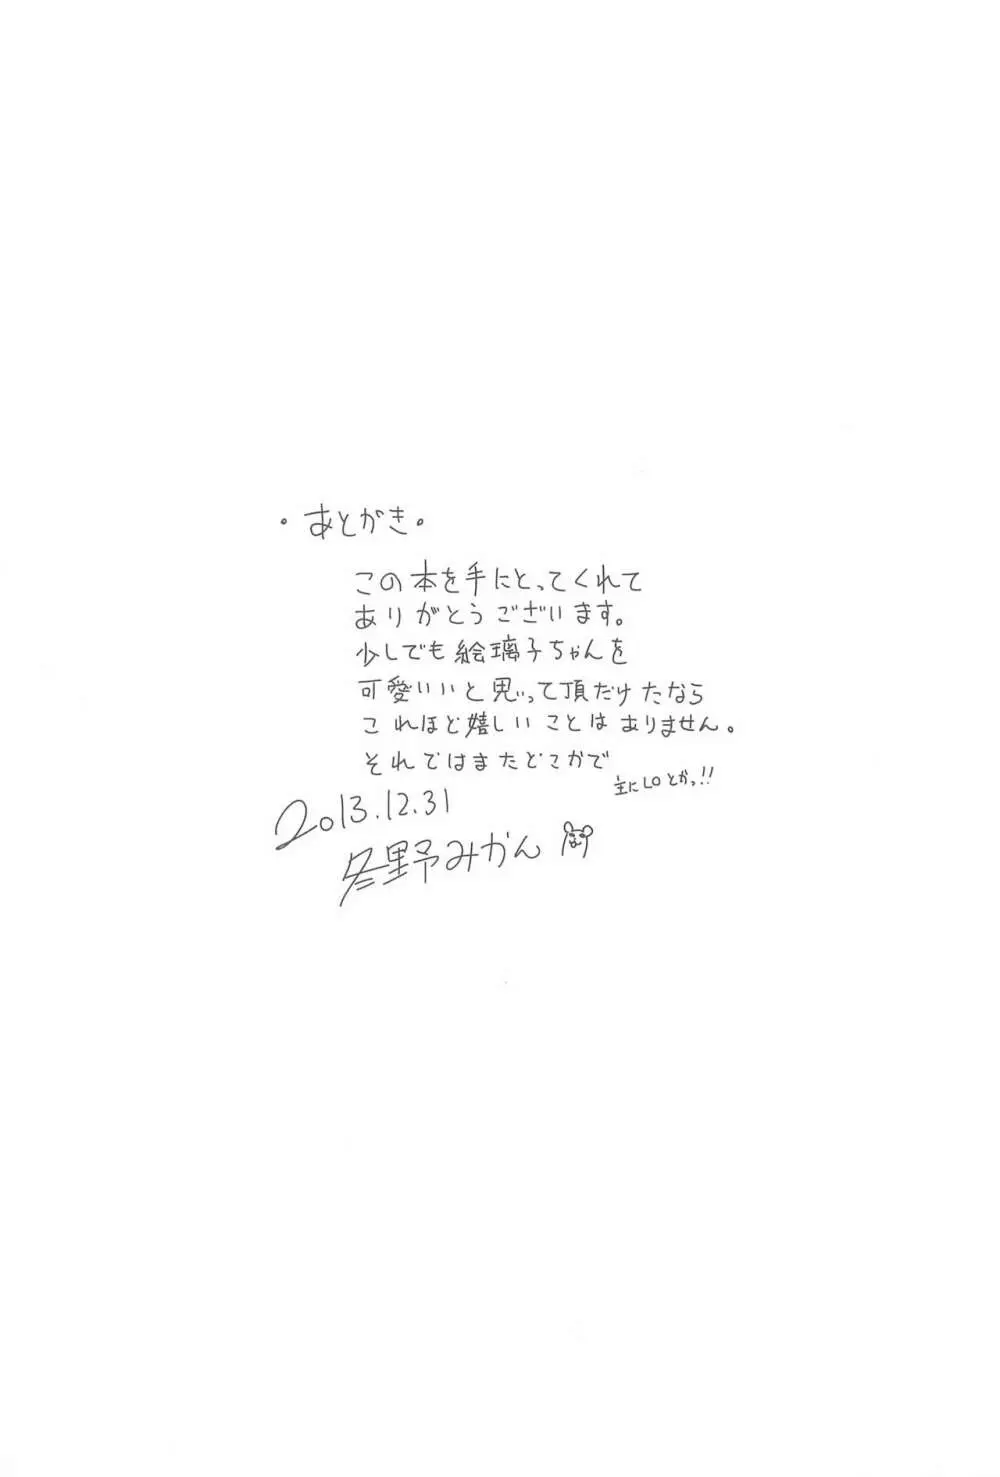 ・あとがき・
この本を手にとってくれて
ありがとうございます。
少しでも絵璃子ちゃんを
可愛いいと思って頂だけたなら
これほど嬉しいことはありません。
それではまたどこかで
主にLOとかっ!!
2013.12.31
冬野みかん